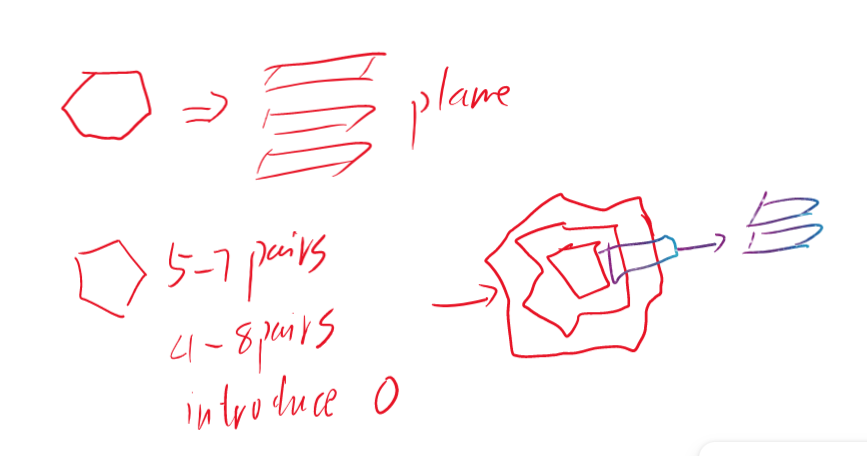 ⇒ plane
5-7 pairs
4-8 pairs
introduce O